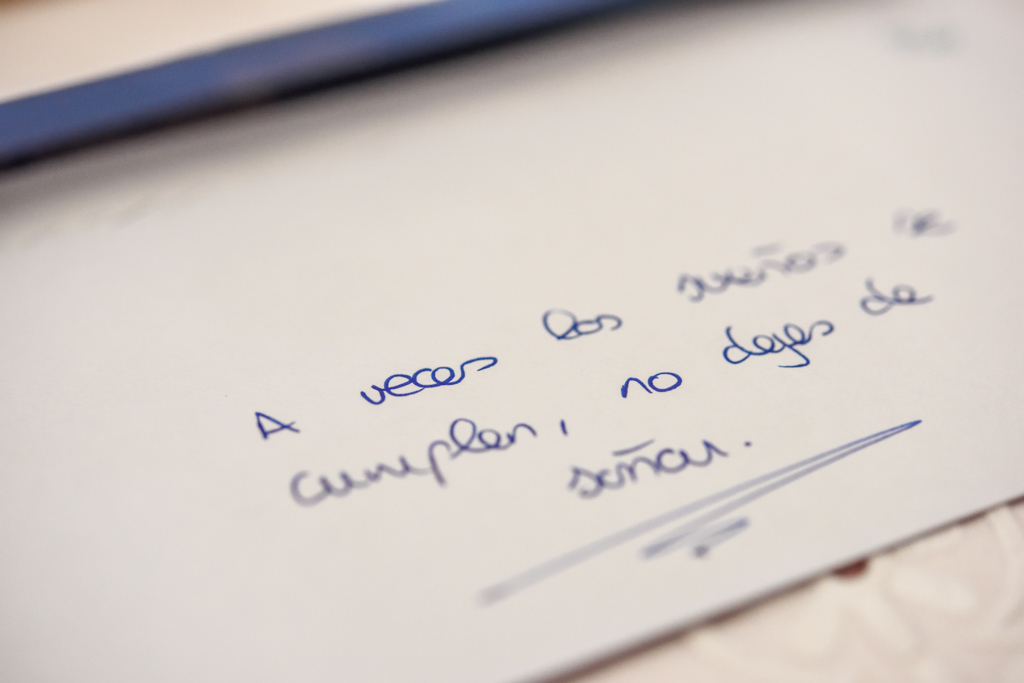 A veces los sueños se
cumplen, no dejes de
soñar.